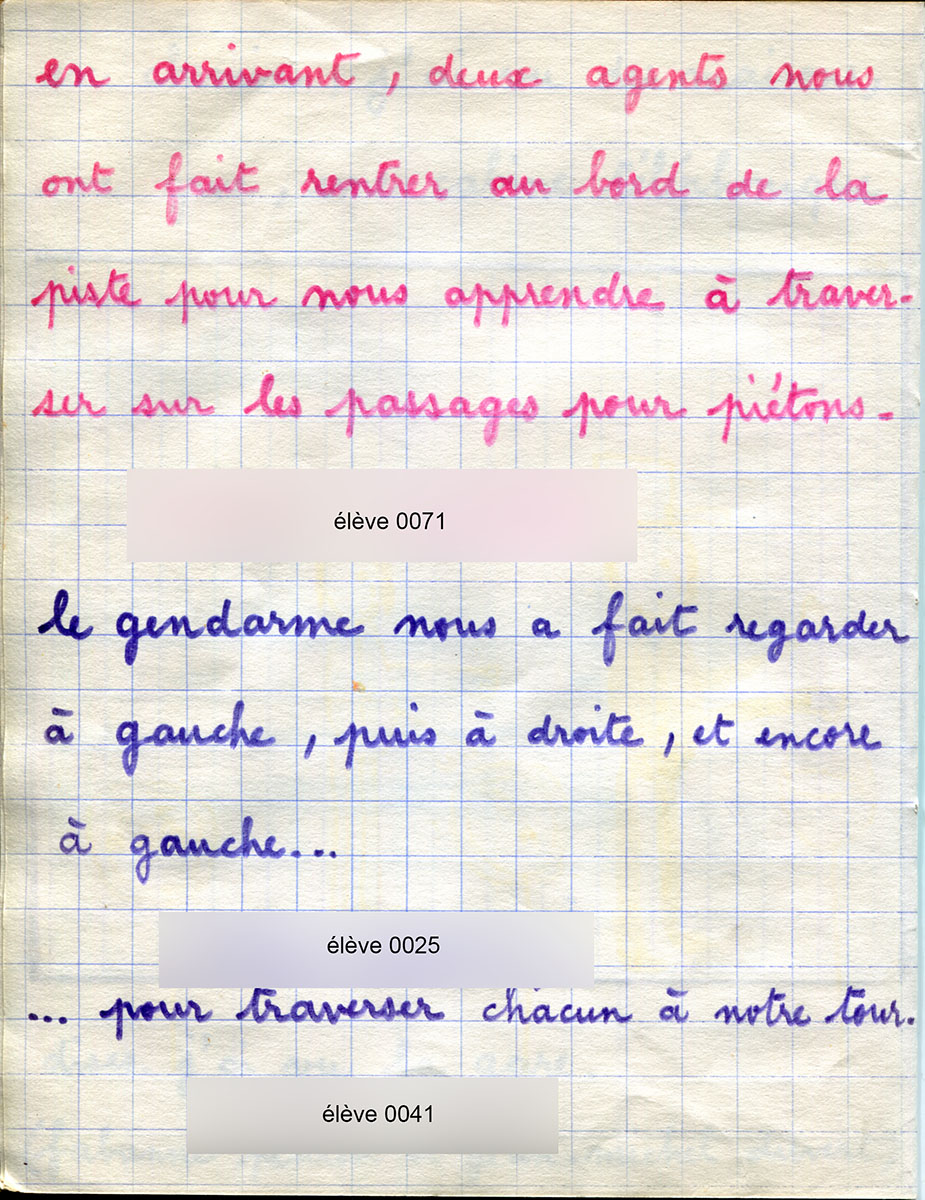 en arrivant, deux agents nous
ont fait rentrer au bord de la
piste pour nous apprendre à traver-
ser sur les passages pour piétons.
élève 0071
le gendarme nous a fait regarder
à gauche, puis à droite, et encore
à gauche...
élève 0025
... pour traverser chacun à notre tour.
élève 0041